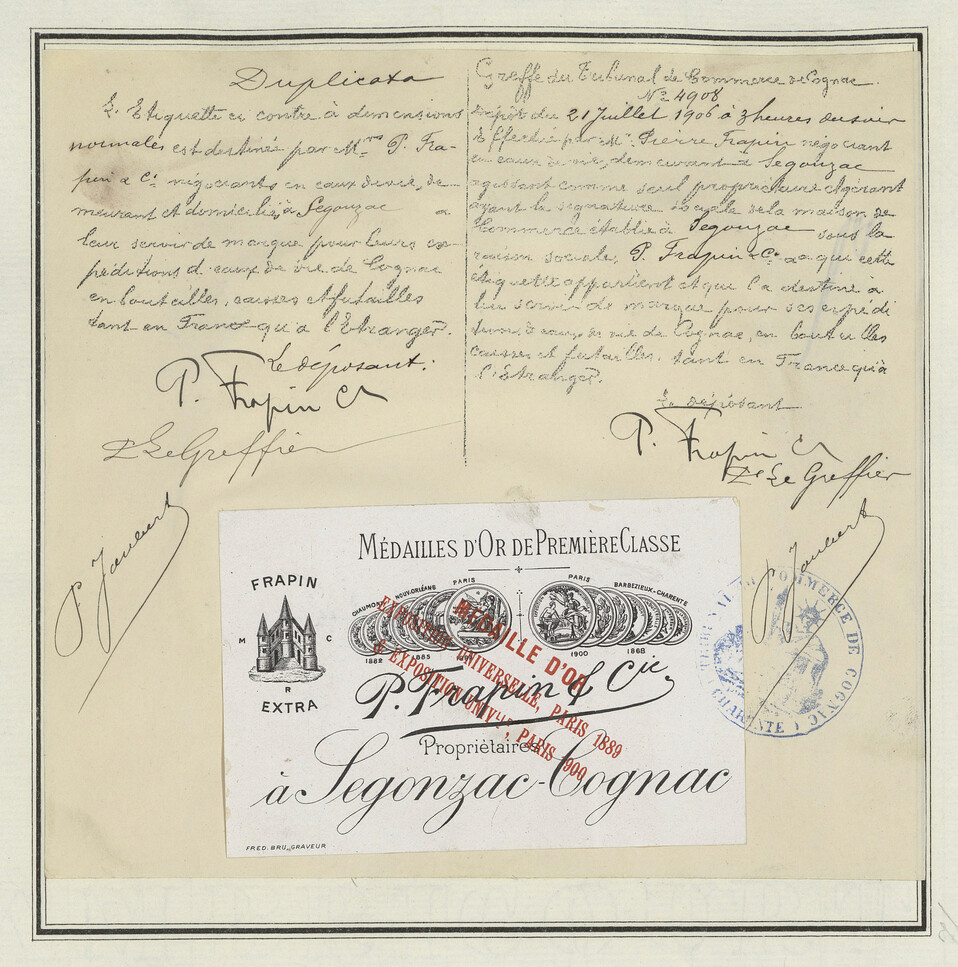 Duplicata
L'Etiquette ci contre à dimensions
normales est destinée par Mrs P. Fra-
pin & Cie négociants en eaux de vie, de-
meurant et domiciliés à Segonzac a
leur servir de marque pour leurs ex-
péditions d'eaux de vie de Cognac
en bouteilles, caisses et futailles
tant en France qu'à l'Etranger.
Le déposant:
P. Frapin Cie
Le Greffier
P. Joubert
Greffe du Tribunal de Commerce de Cognac
No 4908
Dépôt du 21 Juillet 1906 à 3 heures du soir
Effectué par Mr. Pierre Frapin négociant
en eaux de vie, demeurant à Segonzac
agissant comme seul propriétaire et gérant
ayant la signature sociale de la maison de
Commerce établie à Segonzac sous la
raison sociale, P. Frapin & Cie à qui cette
étiquette appartient et qui l'a destinée à
lui servir de marque pour ses expédi
tions d'eaux de vie de Cognac, en bouteilles
caisses et futailles, tant en France qu'à
l'étranger.
Le déposant
P. Frapin Cie
Le Greffier
P. Joubert
TRIBUNAL DE COMMERCE DE COGNAC
(CHARENTE)
MÉDAILLES D'OR DE PREMIÈRE CLASSE
FRAPIN
M C
R
EXTRA
CHAUMONT NOUV-ORLÉANS PARIS
1882 1885
PARIS BARBEZIEUX-CHARENTE
1900 1868
MÉDAILLE D'OR
EXPOSITION UNIVERSELLE, PARIS 1889
& EXPOSITION UNIVlle, PARIS 1900
P. Frapin & Cie,
Propriétaires
à Segonzac-Cognac
FRED. BRU, GRAVEUR